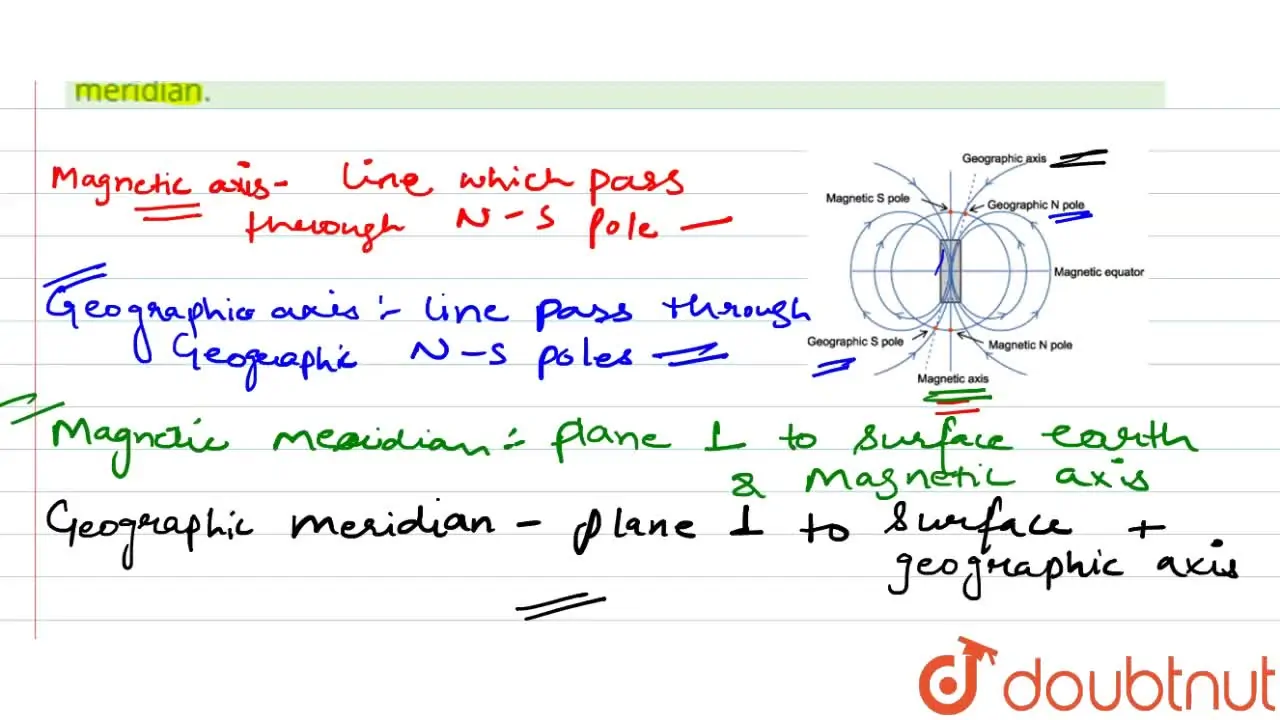 meridian.
Magnetic axis- line which pass
through N-S pole —
Geographic axis
Magnetic S pole
Geographic N pole
Magnetic equator
Geographic S pole
Magnetic N pole
Magnetic axis
Geographic axis :- line pass through
Geographic N-S poles
Magnetic meridian :- plane ⊥ to surface earth
& Magnetic axis
Geographic meridian - plane ⊥ to surface +
geographic axis
doubtnut